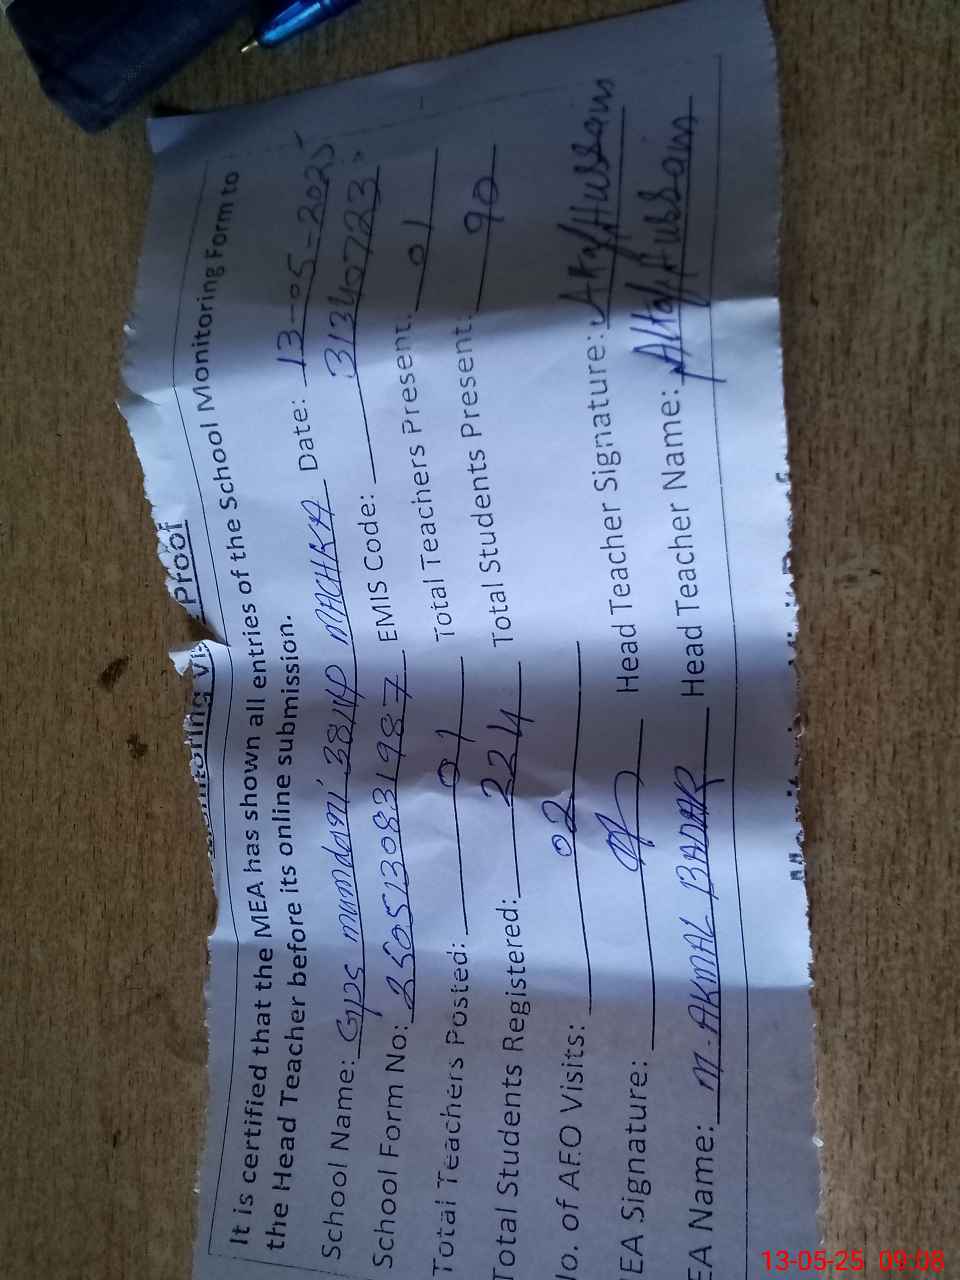 Proof
It is certified that the MEA has shown all entries of the School Monitoring Form to
the Head Teacher before its online submission.
School Name: Gps mumdani 38/4P MACHKA Date: 13-05-2025
School Form No: 250513083 1987 EMIS Code: 31340723
Total Teachers Posted: 01 Total Teachers Present: 01
Total Students Registered: 224 Total Students Present: 90
lo. of AEO Visits: 02
EA Signature: Head Teacher Signature: Altaf Hussain
EA Name: M. AKMAL BADAR Head Teacher Name: Altaf Hussain
13-05-25 09:08